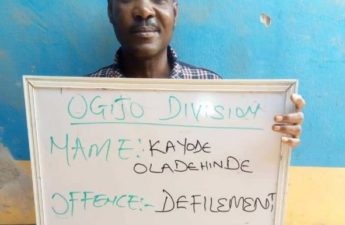 OGIJO DIVISION
MAME:- KAYODE
OLADEHINDE
OFFENCE:- DEFILEMENT